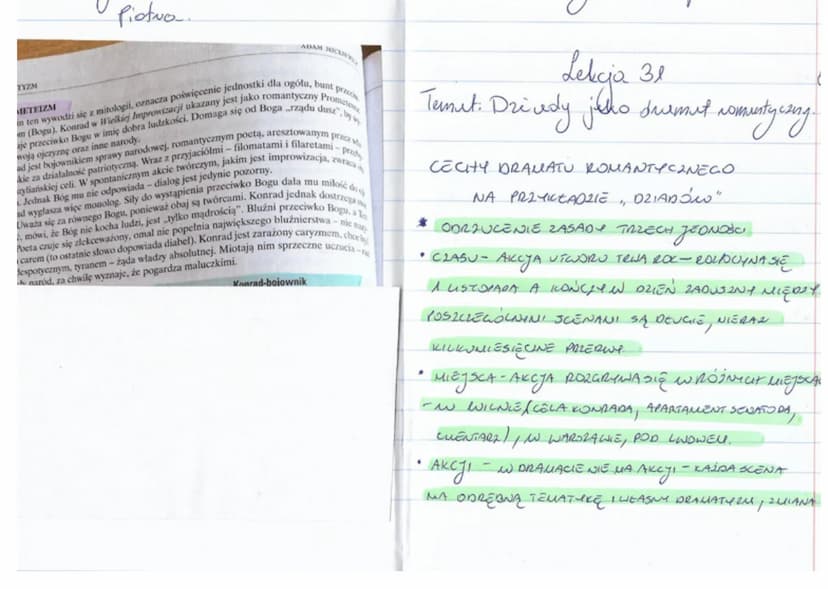 Piotra.
ADAM MICKIEWICZ
TYZM
METEIZM
ten wywodzi się z mitologii, oznacza poświęcenie jednostki dla ogółu, bunt przeciw
(Bogu). Konrad w Wielkiej Improwizacji ukazany jest jako romantyczny Prometeusz
je przeciwko Bogu w imię dobra ludzkości. Domaga się od Boga „rządu dusz", by
woją ojczyznę oraz inne narody.
ad jest bojownikiem sprawy narodowej, romantycznym poetą, aresztowanym przez
kie za działalność patriotyczną. Wraz z przyjaciółmi – filomatami i filaretami –
zyliańskiej celi. W spontanicznym akcie twórczym, jakim jest improwizacja, zwraca
. Jednak Bóg mu nie odpowiada – dialog jest jedynie pozorny.
ad wygłasza więc monolog. Siły do wystąpienia przeciwko Bogu dała mu miłość do
Uważa się za równego Bogu, ponieważ obaj są twórcami. Konrad jednak dostrzega
, mówi, że Bóg nie kocha ludzi, jest „tylko mądrością". Bluźni przeciwko Bogu, a
Poeta czuje się zlekceważony, omal nie popełnia największego bluźnierstwa – nie
carem (to ostatnie słowo dopowiada diabeł). Konrad jest zarażony caryzmem, chce
despotycznym, tyranem – żąda władzy absolutnej. Miotają nim sprzeczne uczucia –
naród, za chwilę wyznaje, że pogardza maluczkimi.
Konrad-bojownik
Lekcja 31
Temat: Dziady jako dramat romantyczny.
CECHY DRAMATU ROMANTYCZNEGO
NA PRZYKŁADZIE „DZIADÓW"
* ODRZUCENIE ZASADY TRZECH JEDNOŚCI
• CZASU – AKCJA UTWORU TRWA ROK – ROZPOCZYNA SIĘ
1 LISTOPADA A KOŃCZY W DZIEŃ ZADUSZNY MIĘDZY
POSZCZEGÓLNYMI SCENAMI SĄ DŁUGIE, NIERAZ
KILKUMIESIĘCZNE PRZERWY
• MIEJSCA – AKCJA ROZGRYWA SIĘ W RÓŻNYCH MIEJSCA
– W WILNIE (CELA KONRADA, APARTAMENT SENATORA,
CMENTARZ), W WARSZAWIE, POD LWOWEM.
• AKCJI – W DRAMACIE NIE MA AKCJI – KAŻDA SCENA
MA ODRĘBNĄ TEMATYKĘ I WŁASNY DRAMATYZM, ZMIANA